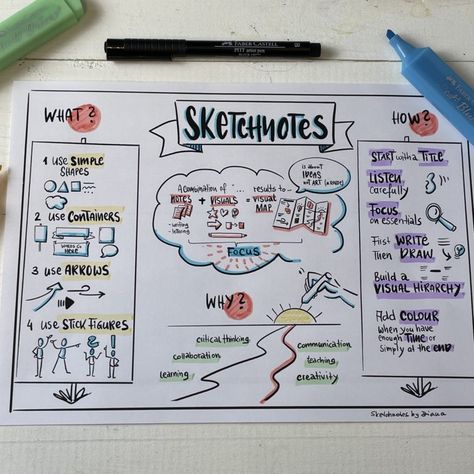 FABER-CASTELL
PITT artist pen
B
SKETCHNOTES
WHAT?
1 USE SIMPLE
SHAPES
2 USE CONTAINERS
WORDS GO
HERE
3 USE ARROWS
4 USE STICK FIGURES
A combination of
results to
NOTES + VISUALS = VISUAL
MAP
- writing
- lettering
FOCUS
is about
IDEAS
not ART
WHY?
critical thinking
collaboration
learning
communication
teaching
creativity
HOW?
START with a TITLE
LISTEN
carefully
FOCUS
on essentials
First WRITE
Then DRAW
Build a
VISUAL HIRARCHY
Add COLOUR
when you have
enough TIME or
simply at the END
Sketchnotes by Diana